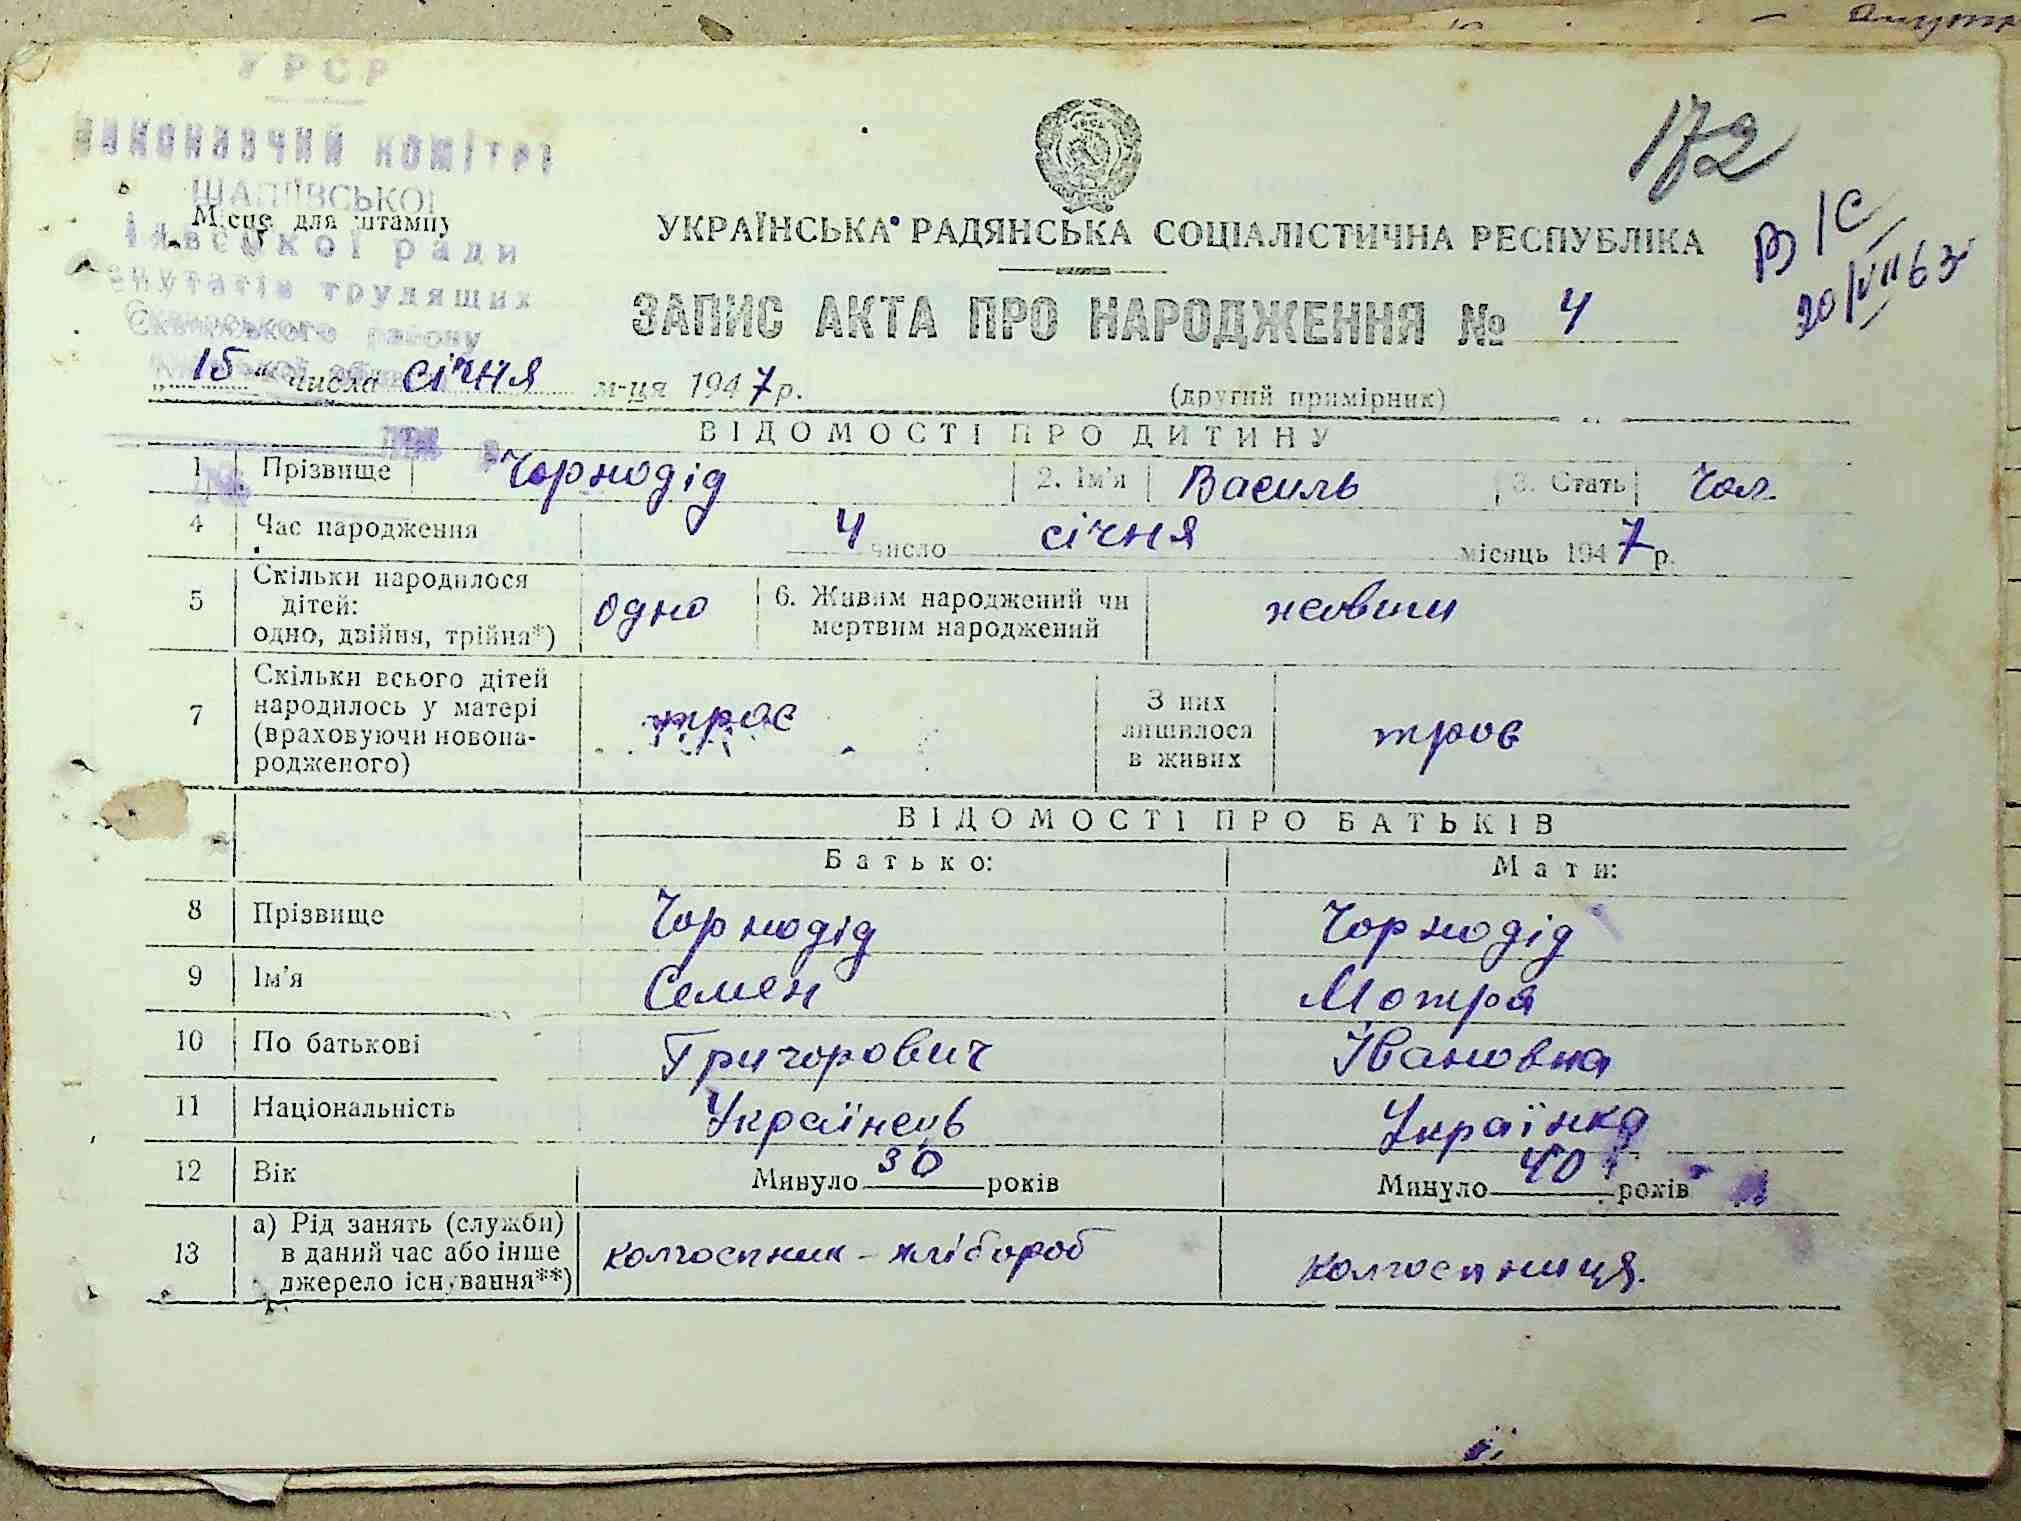 УРСР
виконавчий комітет
ШАЛІЇВСЬКОЇ
Місце для штампу
ради
депутатів трудящих
Сквирського району
172
В/С
20/VII 63
УКРАЇНСЬКА РАДЯНСЬКА СОЦІАЛІСТИЧНА РЕСПУБЛІКА
ЗАПИС АКТА ПРО НАРОДЖЕННЯ № 4
„15" числа січня м-ця 1947 р. (другий примірник)
ВІДОМОСТІ ПРО ДИТИНУ
1 Прізвище Чорнодід 2. Ім'я Василь 3. Стать Чол.
4 Час народження 4 число січня місяць 1947 р.
5 Скільки народилося дітей: одно, двійня, трійня*) одно 6. Живим народжений чи мертвим народжений живим
7 Скільки всього дітей народилось у матері (враховуючи новонародженого) троє З них лишилося в живих троє
ВІДОМОСТІ ПРО БАТЬКІВ
Батько: Мати:
8 Прізвище Чорнодід Чорнодід
9 Ім'я Семен Мотря
10 По батькові Григорович Івановна
11 Національність Українець Українка
12 Вік Минуло 30 років Минуло 40 років
13 а) Рід занять (служби) в даний час або інше джерело існування**) колгоспник - хлібороб колгоспниця.